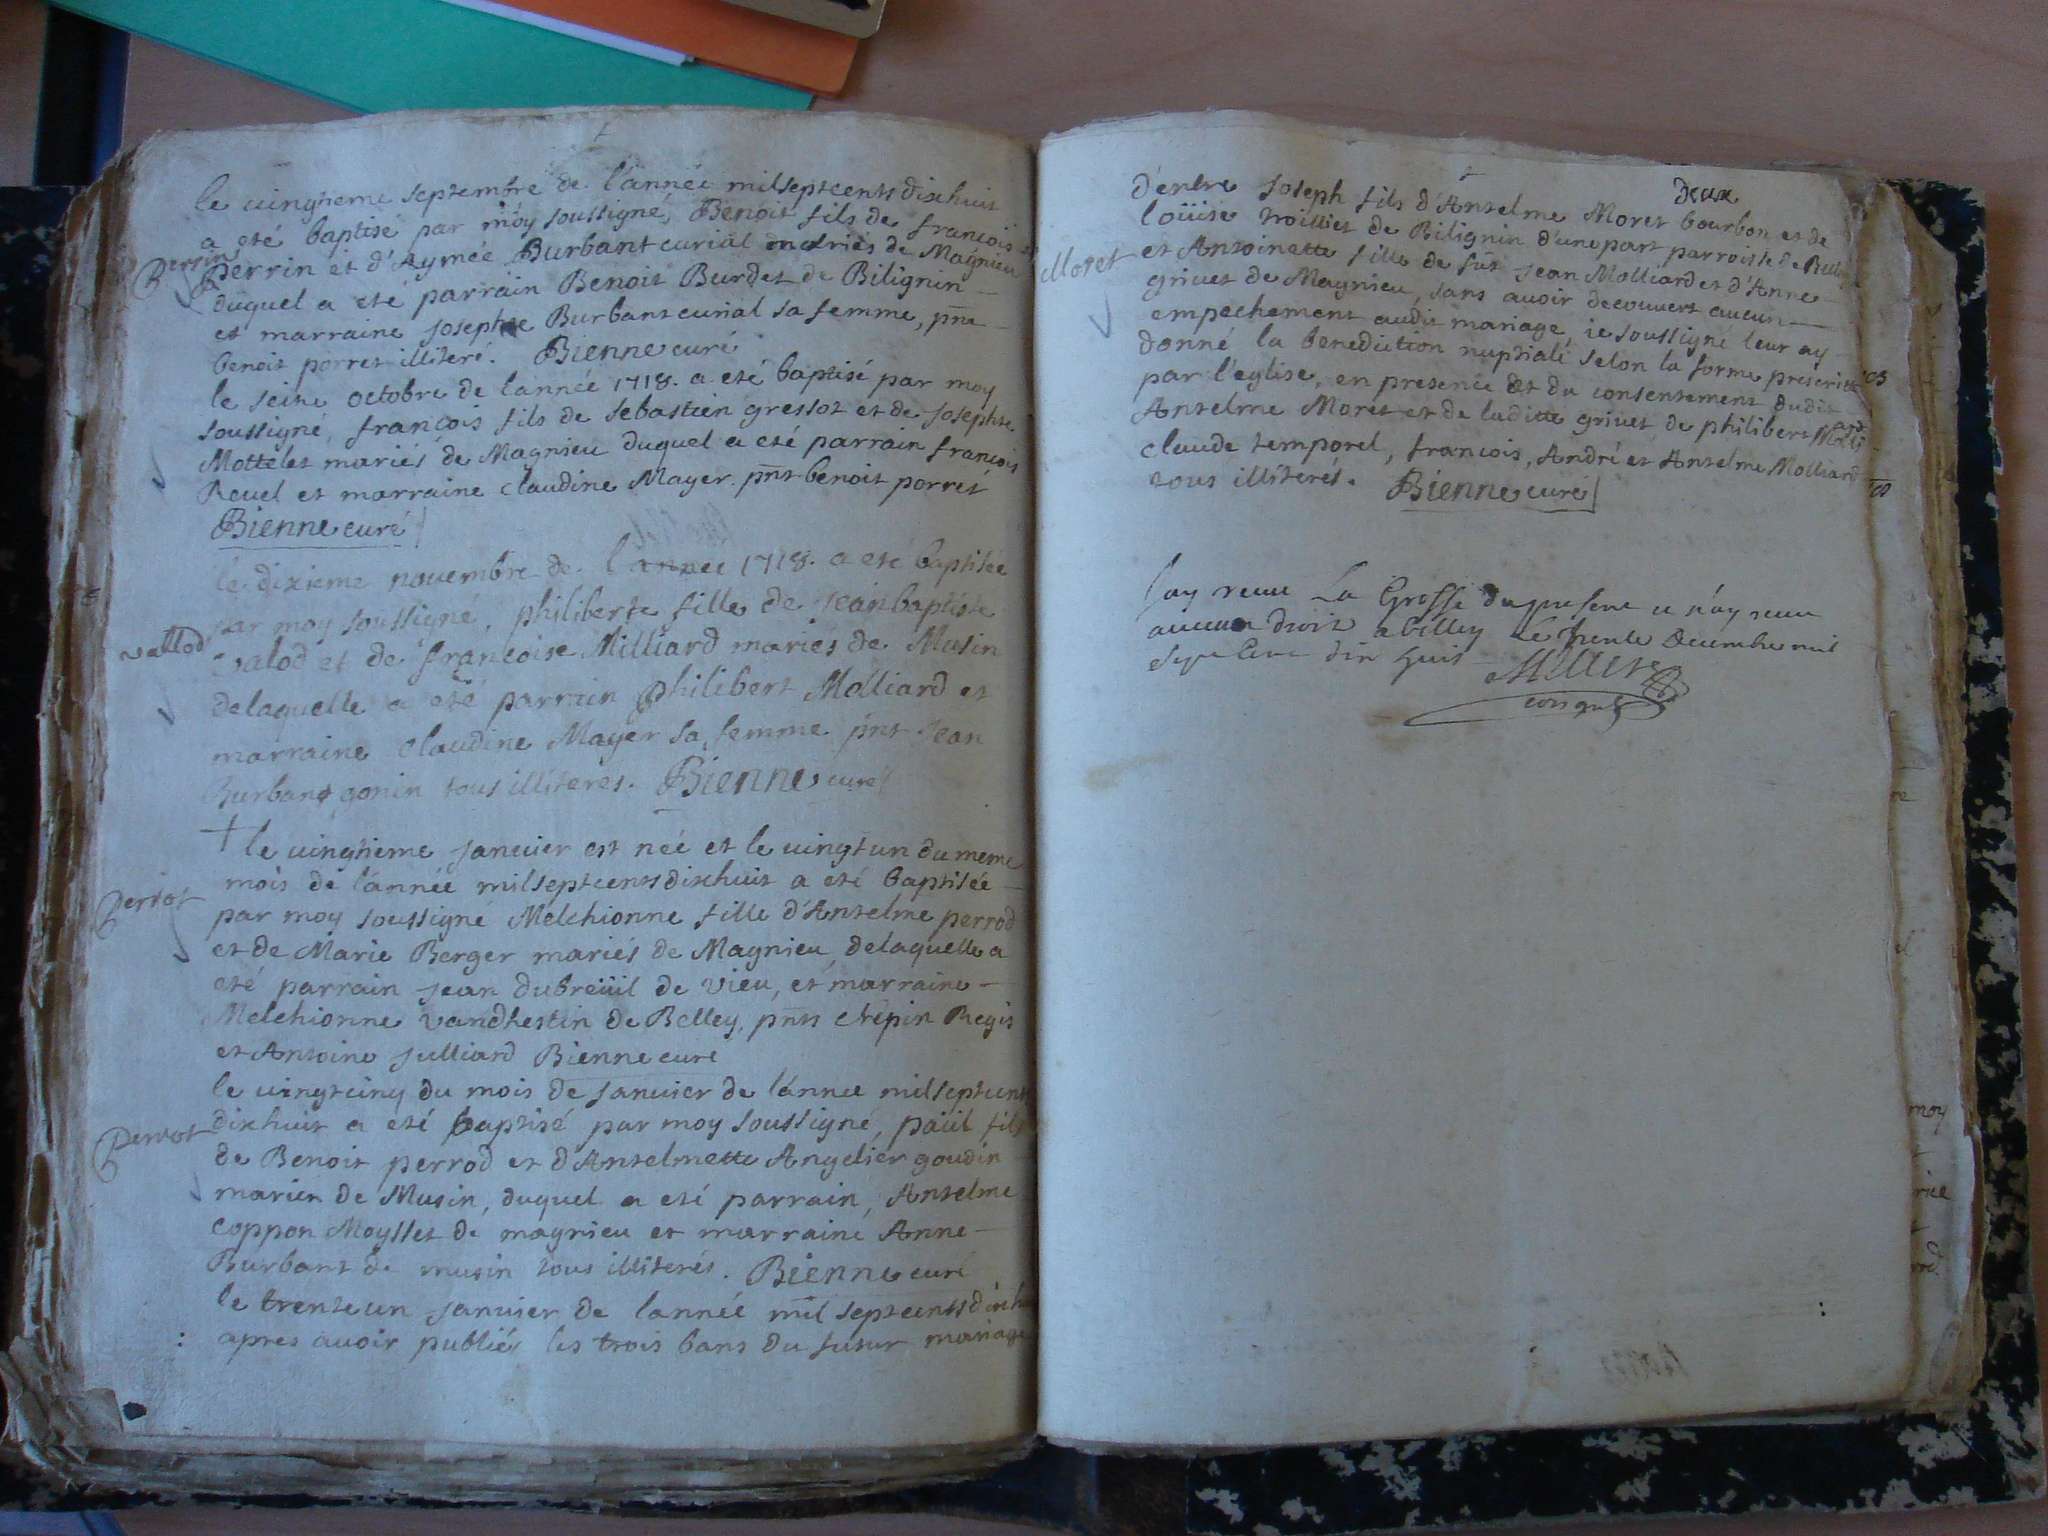 le vingtieme septembre de l'année milseptcents dixhuit
a eté baptisé par moy soussigné, Benoit fils de françois
Perrin
perrin et d'Aymée Burbant curial mariés de Magnieu
duquel a eté parrain Benoit Burdet de Bilignin
et marraine Josephte Burbant curial sa femme, pnt
benoit porret illiteré. Bienne curé
le seize octobre de l'année 1718. a eté baptisé par moy
soussigné, françois fils de sebastien gressot et de Josephte
Mottelet mariés de Magnieu duquel a eté parrain françois
Revel et marraine claudine Mayer. pnt benoit porret
Bienne curé
le dixieme novembre de l'année 1718. a eté baptisée
par moy soussigné, philiberte fille de Jeanbaptiste
vallod
valod et de françoise Milliard mariés de Musin
delaquelle a eté parrain philibert Molliard et
marraine claudine Mayer sa femme pnt Jean
Burbant gonin tous illiterés. Bienne curé
+ le vingtieme Janvier est née et le vingt un du meme
mois de l'année milseptcentsdixhuit a eté baptisée
Perrot
par moy soussigné Melchionne fille d'Antelme perrod
et de Marie Berger mariés de Magnieu, delaquelle a
eté parrain Jean dubreüil de vieu, et marraine
Melchionne vandhestin de Belley, pnts crépin Regis
et Antoine Julliard Bienne curé
le vingtcinq du mois de Janvier de l'année milseptcents
Perrot
dixhuit a eté baptisé par moy soussigné, paül fils
de Benoit perrod et d'Antelmette Angelier goudin
mariés de Musin, duquel a eté parrain, Antelme
coppon Moysset de magnieu et marraine Anne
Burbant de musin tous illiterés. Bienne curé
le trenteun Janvier de l'année mil septcents dixh
: apres avoir publiés les trois bans du futur mariage
deux
d'entre Joseph fils d'Antelme Moret bourbon et de
loüise trolliet de Bilignin d'une part parroisse de Belley
Moret
et Antoinette fille de fût Jean Molliard et d'Anne
grivet de Magnieu, sans avoir decouvert aucun
empechement audit mariage, ie soussigné leur ay
donné la benediction nuptiale selon la forme prescritte
par l'église, en presence et du consentement dudit
Antelme Moret et de laditte grivet de philibert
claude temporel, françois, André et Antelme Molliard
tous illiterés. Bienne curé
J'ay reçeu La Grosse du present et n'ay reçeu
aucun droit a belley le trente decembre mil
sept cent dix huit